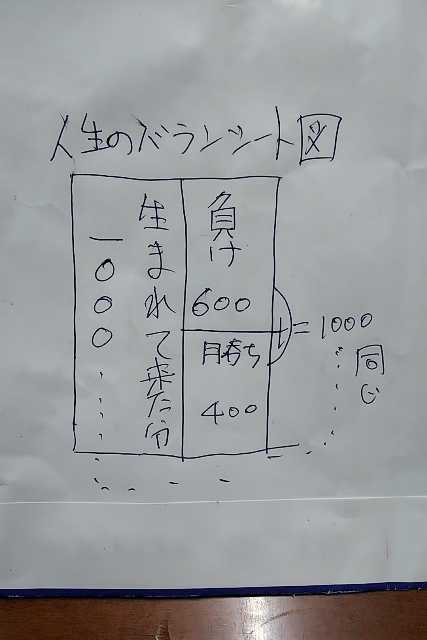 人生のバランシート図
生まれて来た分
一〇〇〇
負け
600
勝ち
400
+ = 1000
同じ